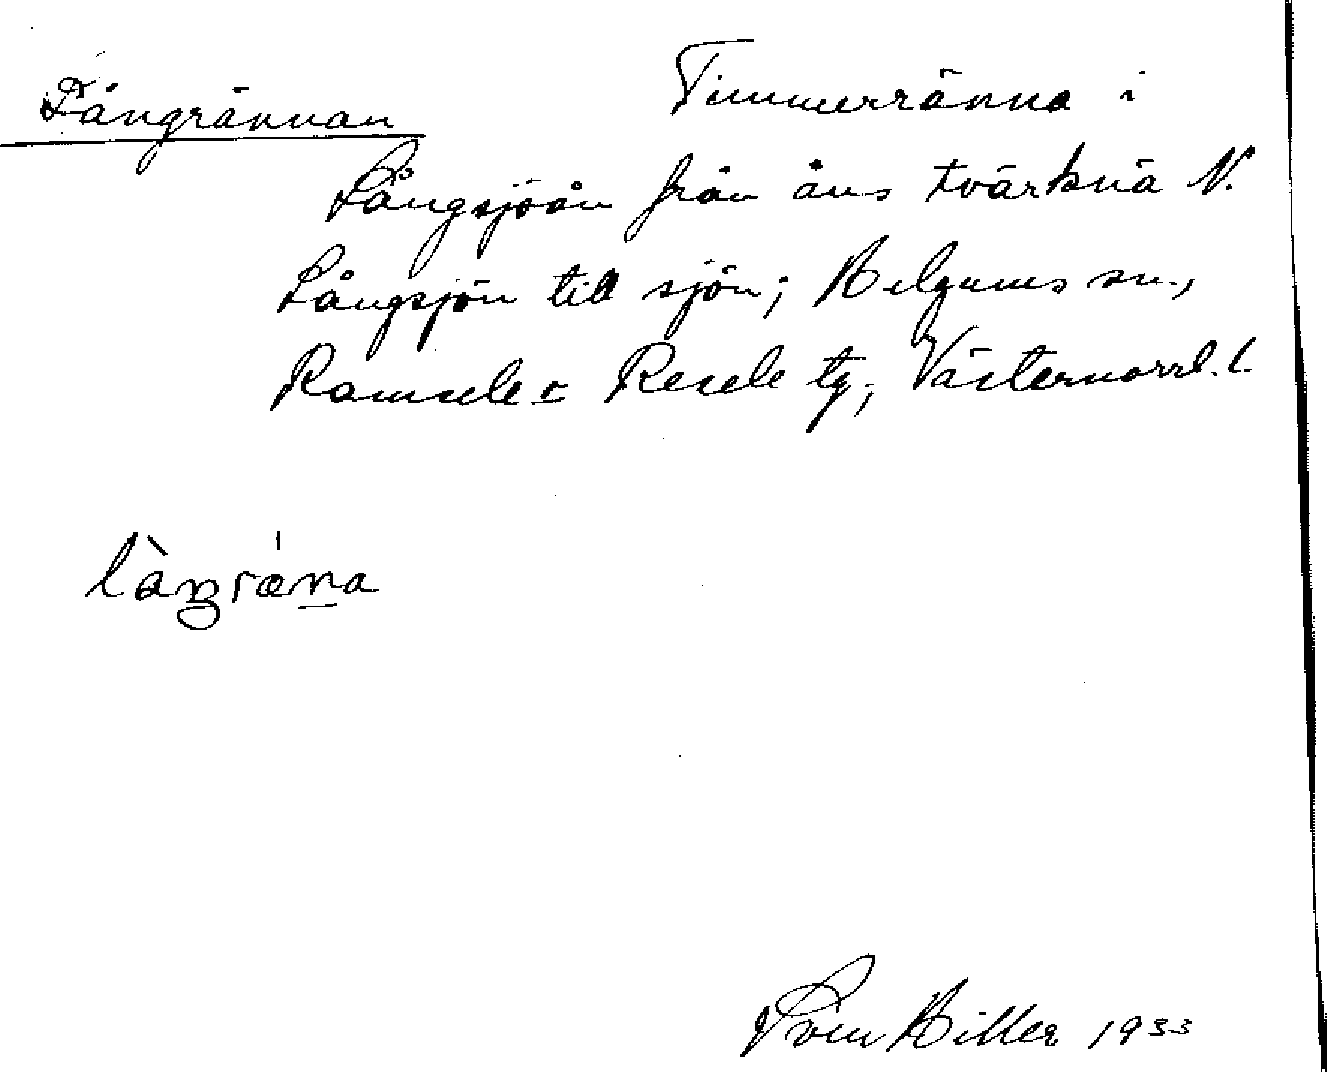 Långrännan Timmerränna i
Långsjöån från åns tvärknä N.
Långsjön till sjön; Helgums sn.,
Ramsele o Resele tg, Västernorrl. l.
làŋrǽna
Sven Hiller 1933